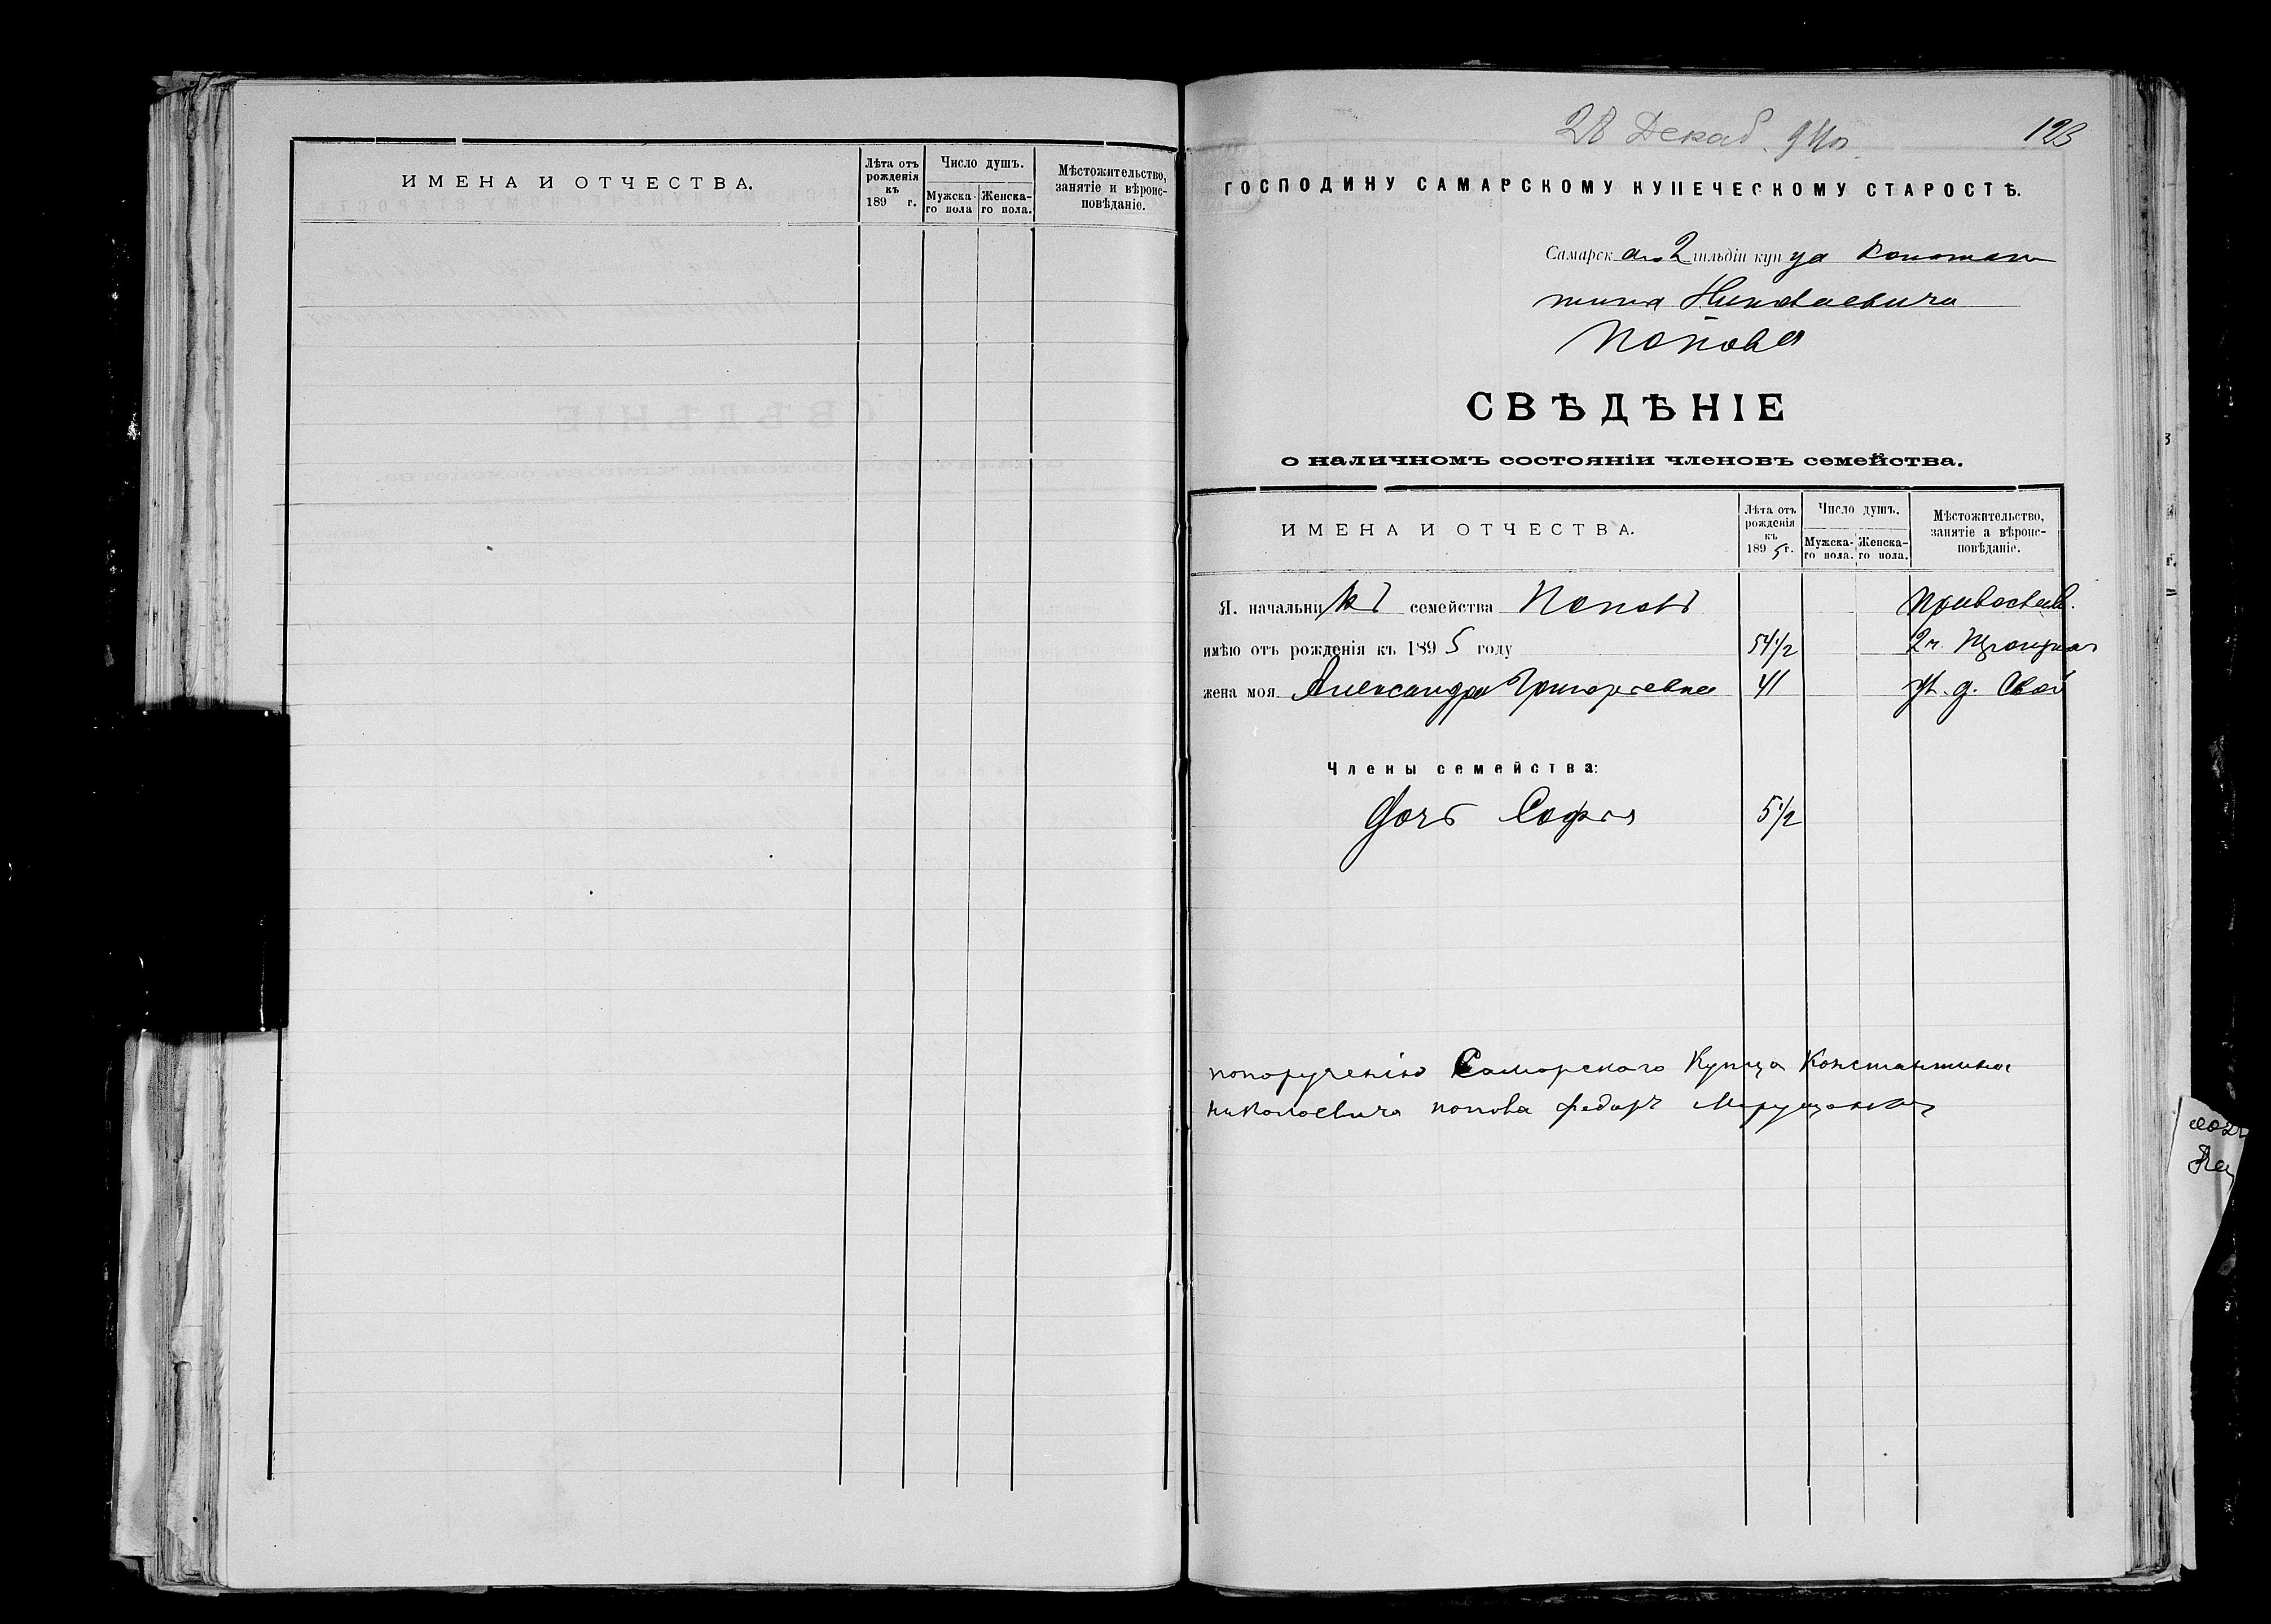 ИМЕНА И ОТЧЕСТВА.
Лѣта отъ рожденія къ 189 г.
Число душъ.
Мужска-го пола
Женска-го пола.
Мѣстожительство, занятіе и вѣроис-повѣданіе.
28 Декаб. 94 г.
123
ГОСПОДИНУ САМАРСКОМУ КУПЕЧЕСКОМУ СТАРОСТѢ.
Самарскаго 2 гильдіи купца Констан
тина Николаевича
Попова
СВѢДѢНІЕ
о наличномъ состояніи членовъ семейства.
ИМЕНА И ОТЧЕСТВА.
Лѣта отъ рожденія къ 1895 г.
Число душъ.
Мужска-го пола.
Женска-го пола.
Мѣстожительство, занятіе а вѣроис-повѣданіе.
Я. начальникъ семейства Поповъ Православ.
имѣю отъ рожденія къ 1895 году 54 1/2 2 ч. Троицкая
жена моя Александра Григорьевна 41 ул. д. Свой
Члены семейства:
Дочь Софья 5 1/2
попорученію Самарского Купца Константина
николаевича попова федоръ